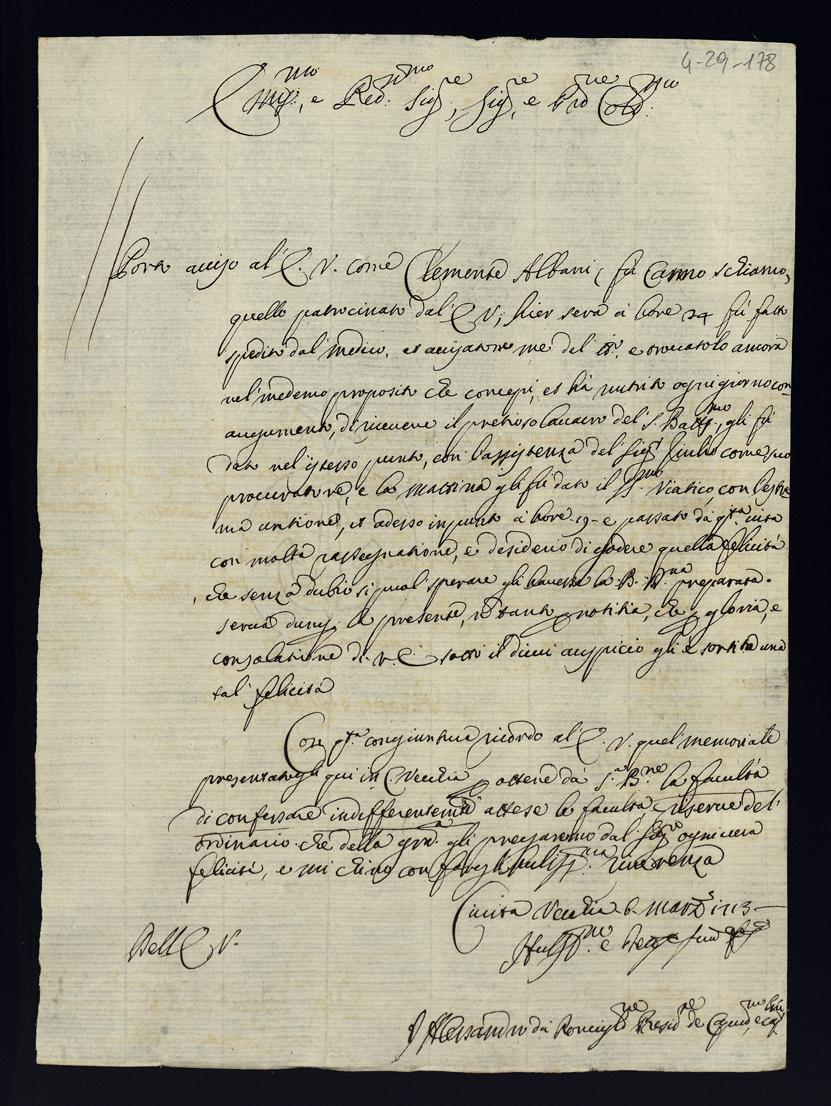 4-29-178
Em.mo, e Red.mo Sig.re, Sig.re, e Prõn Col.mo
Porto aviso al' E. V. come Clemente Albani, fù Camo schiavo,
quello patrocinato dal' E V; hier sera à hore 24 fù fatto
spedito dal' medico, et avisatone me del tt.o, e trovatolo ancora
nel' medemo proposito che concepì, et hà nutrito ogni giorno con
augumento, di ricevere il pretioso lavacro del' S. Batt.mo, gli fù
dato nel' istesso punto, con l'assistenza del' Sig.r Giulio come suo
procuratore, e la mattina gli fù dato il SS.mo Viatico, con l'estre
ma untione, et adesso in punto à hore 19 - e passato dà q.ta vita
con molta rassegnatione, e desiderio di godere quella felicità
che senza dubio si puol' sperare gli havesse la B. V.na preparata.
servirà dunq. la presente, nõ tanto p notitia, che p gloria, e
consolatione di V. E. sotto il di cui auspicio gli è sortita una
tal' felicità
Con q.ta congiuntura ricordo al' E. V. quel memoriale
presentatogli qui in C Vecchia p ottene dà S.a B.ne la facultà
di confessare indifferentem.te attese le facultà riserve del'
ordinario che della gra. gli pregaremo dal' Sig.re ogni vera
felicità, e mi chino con fargli humiliss.ma riverenza
Civita Vecchia 6. marzo 1713 -
Dell E V.
Hum.mo e
F Alessandro da Ronciglne Presid.te de Capuc.ni